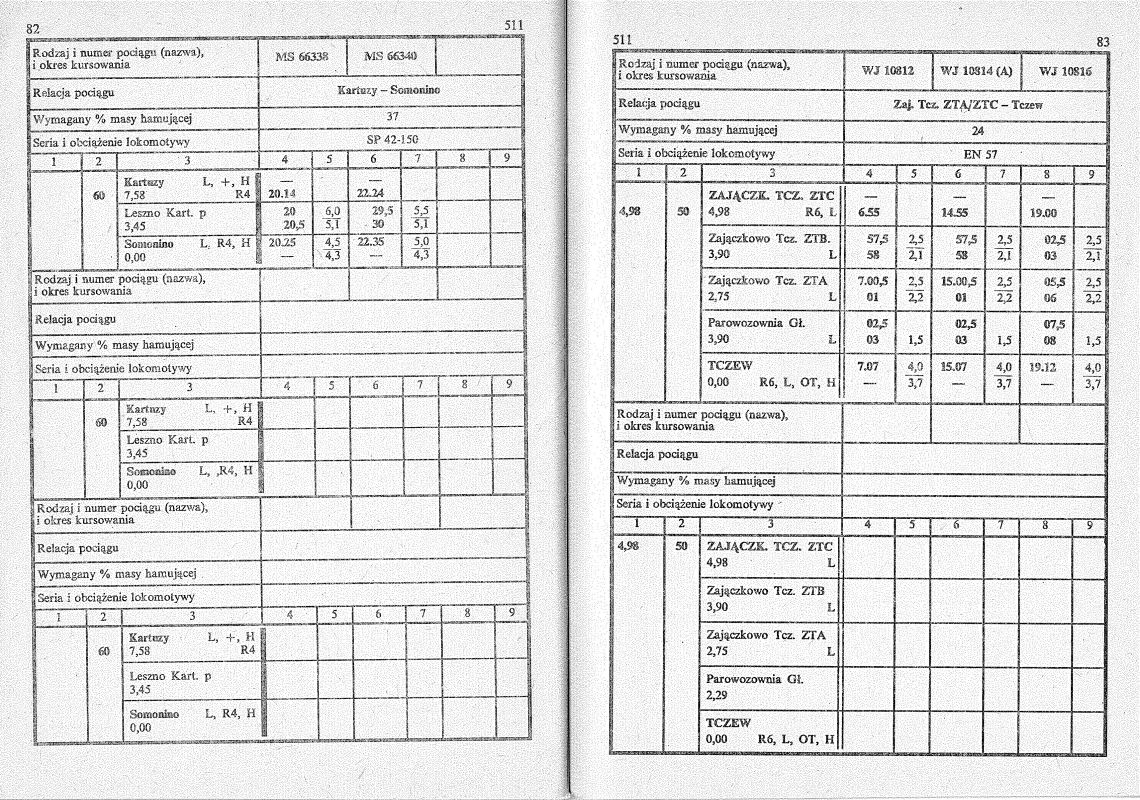 82 511
Rodzaj i numer pociągu (nazwa), MS 66338 MS 66340
i okres kursowania
Relacja pociągu Kartuzy – Somonino
Wymagany % masy hamującej 37
Seria i obciążenie lokomotywy SP 42-150
1 2 3 4 5 6 7 8 9
Kartuzy L, +, H — —
60 7,58 R4 20.14 22.24
Leszno Kart. p 20 6,0 29,5 5,5
3,45 20,5 5,1 30 5,1
Somonino L, R4, H 20.25 4,5 22.35 5,0
0,00 — 4,3 — 4,3
Rodzaj i numer pociągu (nazwa),
i okres kursowania
Relacja pociągu
Wymagany % masy hamującej
Seria i obciążenie lokomotywy
1 2 3 4 5 6 7 8 9
Kartuzy L, +, H
60 7,58 R4
Leszno Kart. p
3,45
Somonino L, ,R4, H
0,00
Rodzaj i numer pociągu (nazwa),
i okres kursowania
Relacja pociągu
Wymagany % masy hamującej
Seria i obciążenie lokomotywy
1 2 3 4 5 6 7 8 9
Kartuzy L, +, H
60 7,58 R4
Leszno Kart. p
3,45
Somonino L, R4, H
0,00
511 83
Rodzaj i numer pociągu (nazwa), WJ 10812 WJ 10814 (A) WJ 10816
i okres kursowania
Relacja pociągu Zaj. Tcz. ZTA/ZTC – Tczew
Wymagany % masy hamującej 24
Seria i obciążenie lokomotywy EN 57
1 2 3 4 5 6 7 8 9
ZAJĄCZK. TCZ. ZTC — — —
4,98 50 4,98 R6, L 6.55 14.55 19.00
Zajączkowo Tcz. ZTB. 57,5 2,5 57,5 2,5 02,5 2,5
3,90 L 58 2,1 58 2,1 03 2,1
Zajączkowo Tcz. ZTA 7.00,5 2,5 15.00,5 2,5 05,5 2,5
2,75 L 01 2,2 01 2,2 06 2,2
Parowozownia Gł. 02,5 02,5 07,5
3,90 L 03 1,5 03 1,5 08 1,5
TCZEW 7.07 4,0 15.07 4,0 19.12 4,0
0,00 R6, L, OT, H — 3,7 — 3,7 — 3,7
Rodzaj i numer pociągu (nazwa),
i okres kursowania
Relacja pociągu
Wymagany % masy hamującej
Seria i obciążenie lokomotywy
1 2 3 4 5 6 7 8 9
4,98 50 ZAJĄCZK. TCZ. ZTC
4,98 L
Zajączkowo Tcz. ZTB
3,90 L
Zajączkowo Tcz. ZTA
2,75 L
Parowozownia Gł.
2,29
TCZEW
0,00 R6, L, OT, H